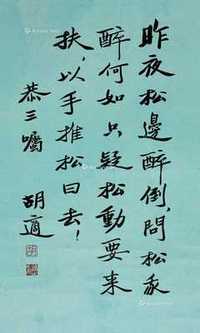 昨夜松邊醉倒，問松我
醉何如只疑松動要来
扶，以手推松曰去！
恭三囑
胡適